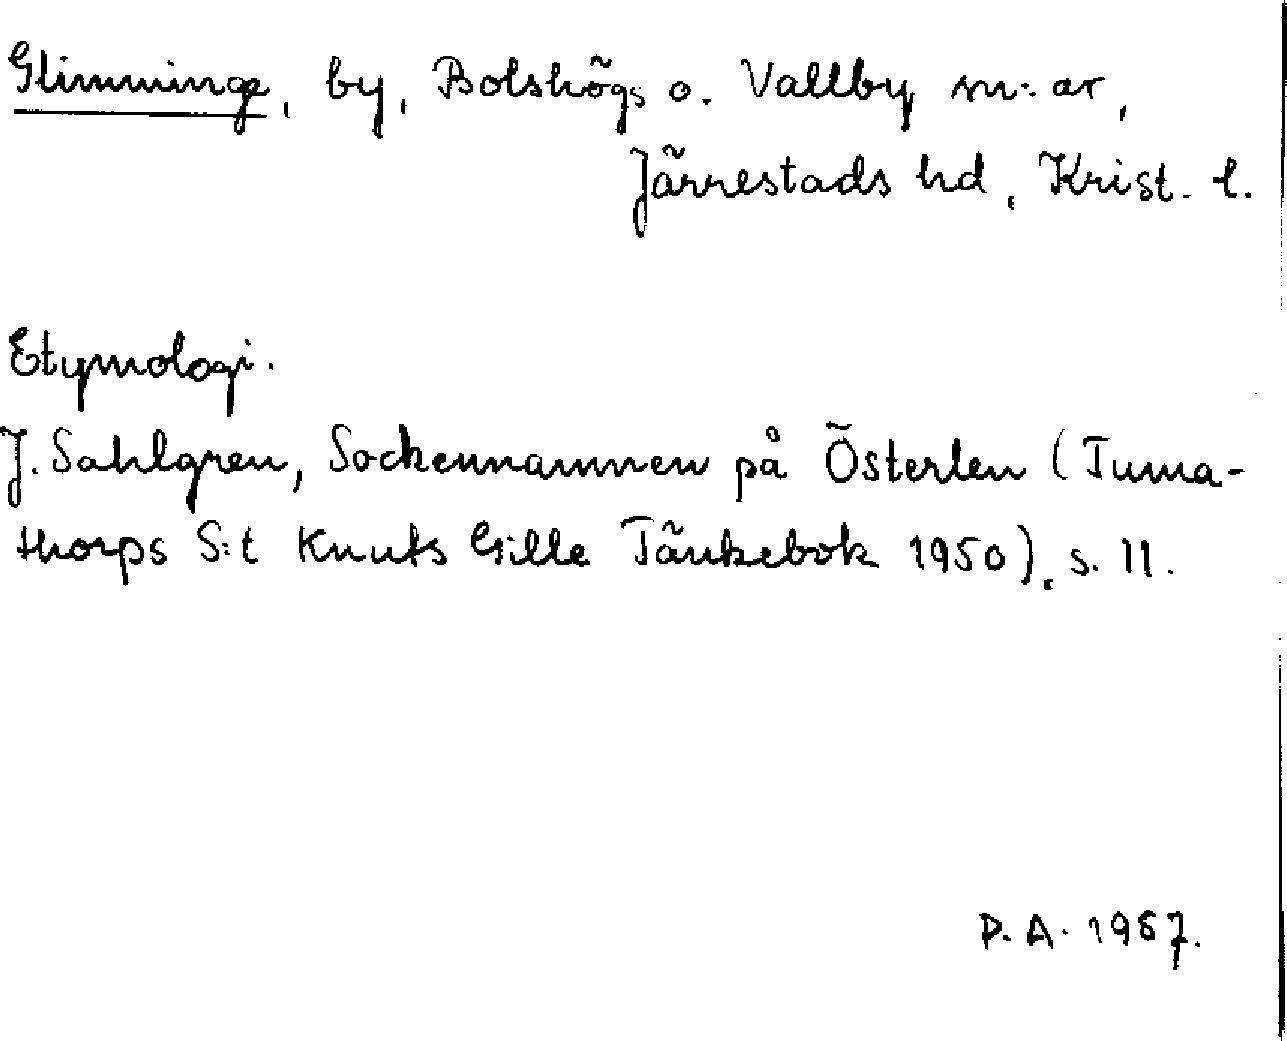 Glimminge, by, Bolshögs o. Vallby sn:ar,
Järrestads hd, Krist. l.
Etymologi.
J. Sahlgren, Sockennamnen på Österlen (Tuma-
thorps S:t Knuts Gille Tänkebok 1950), s. 11.
P. A. 1967.